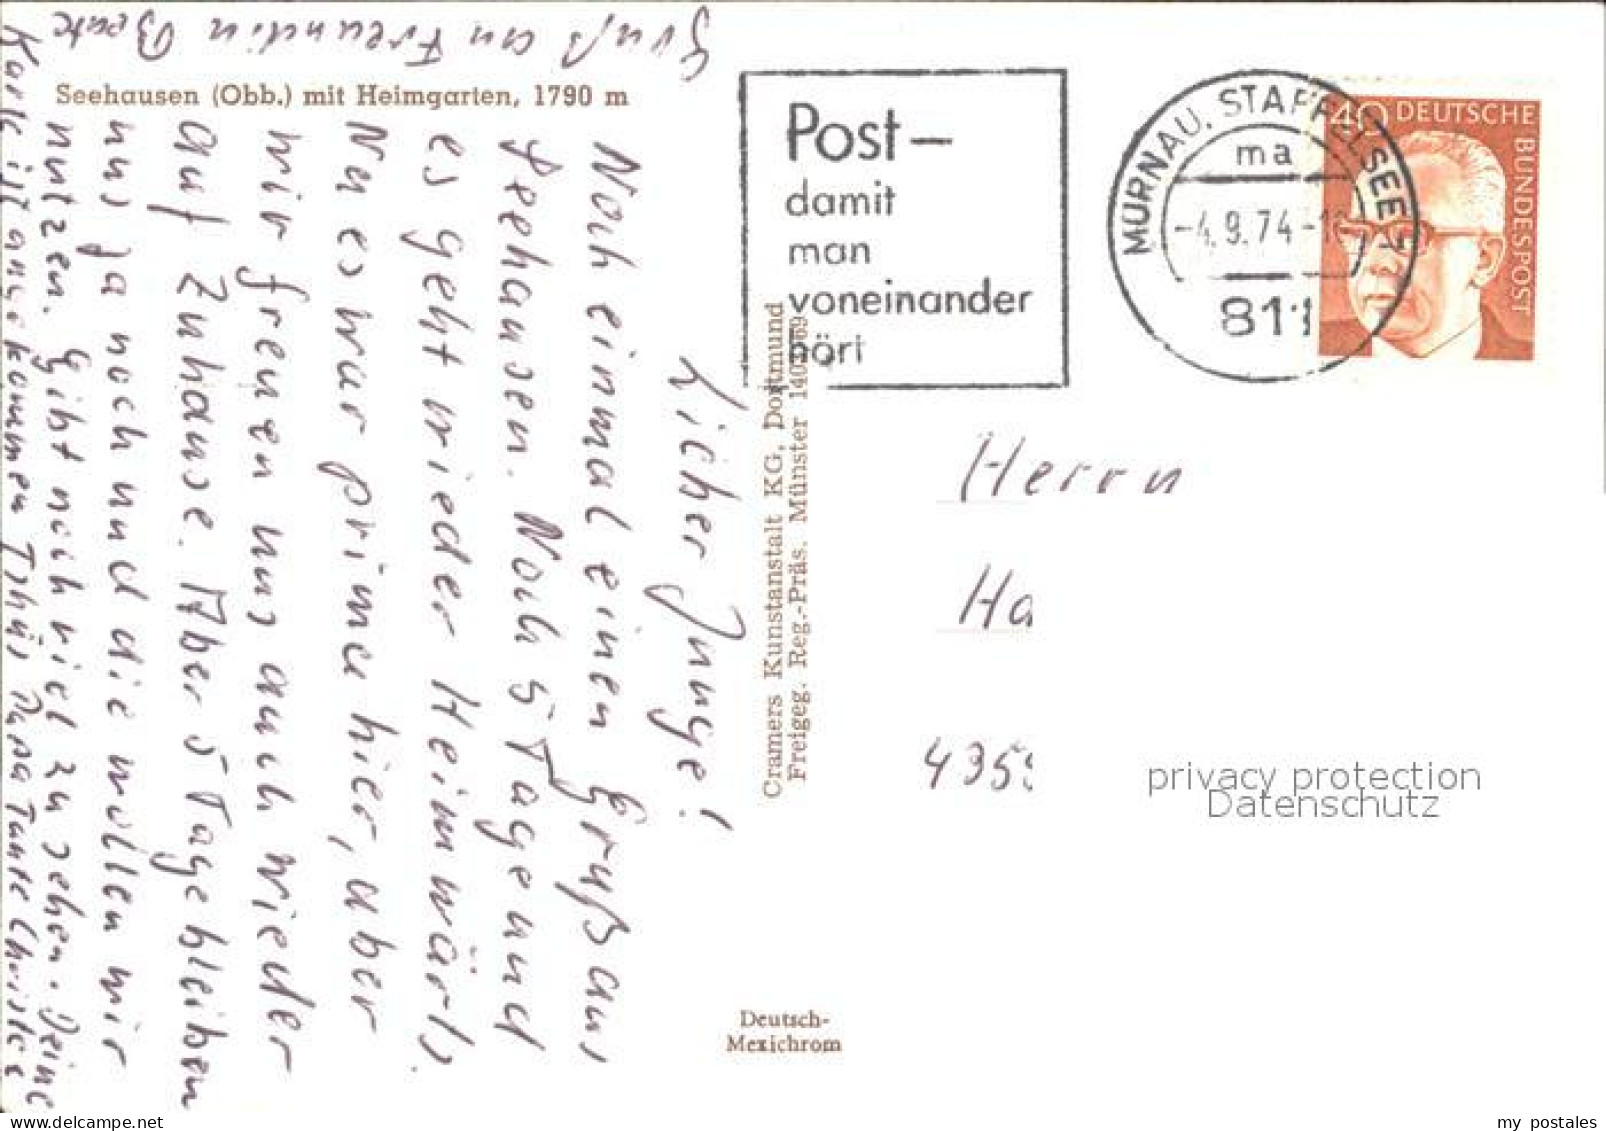 Gruß an Freundin Beate
Seehausen (Obb.) mit Heimgarten, 1790 m
Lieber Junge!
Noch einmal einen Gruß aus
Seehausen. Noch 5 Tage und
es geht wieder Heimwärts.
Nu es war prima hier, aber
wir freuen uns auch wieder
auf Zuhause. Aber 5 Tage bleiben
uns ja noch und die wollen wir
nutzen. Gibt noch viel zu sehen. Deine
Karte ist angekommen Tschüs Papa Tante Christel
Cramers Kunstanstalt KG, Dortmund
Freigeg. Reg.-Präs. Münster
Deutsch-
Mexichrom
Post-
damit
man
voneinander
hört
MURNAU, STAFFELSEE 1
ma
-4.9.74-
811
40 DEUTSCHE
BUNDESPOST
Herrn
Ha
435
privacy protection
Datenschutz
www.delcampe.net
my_postales